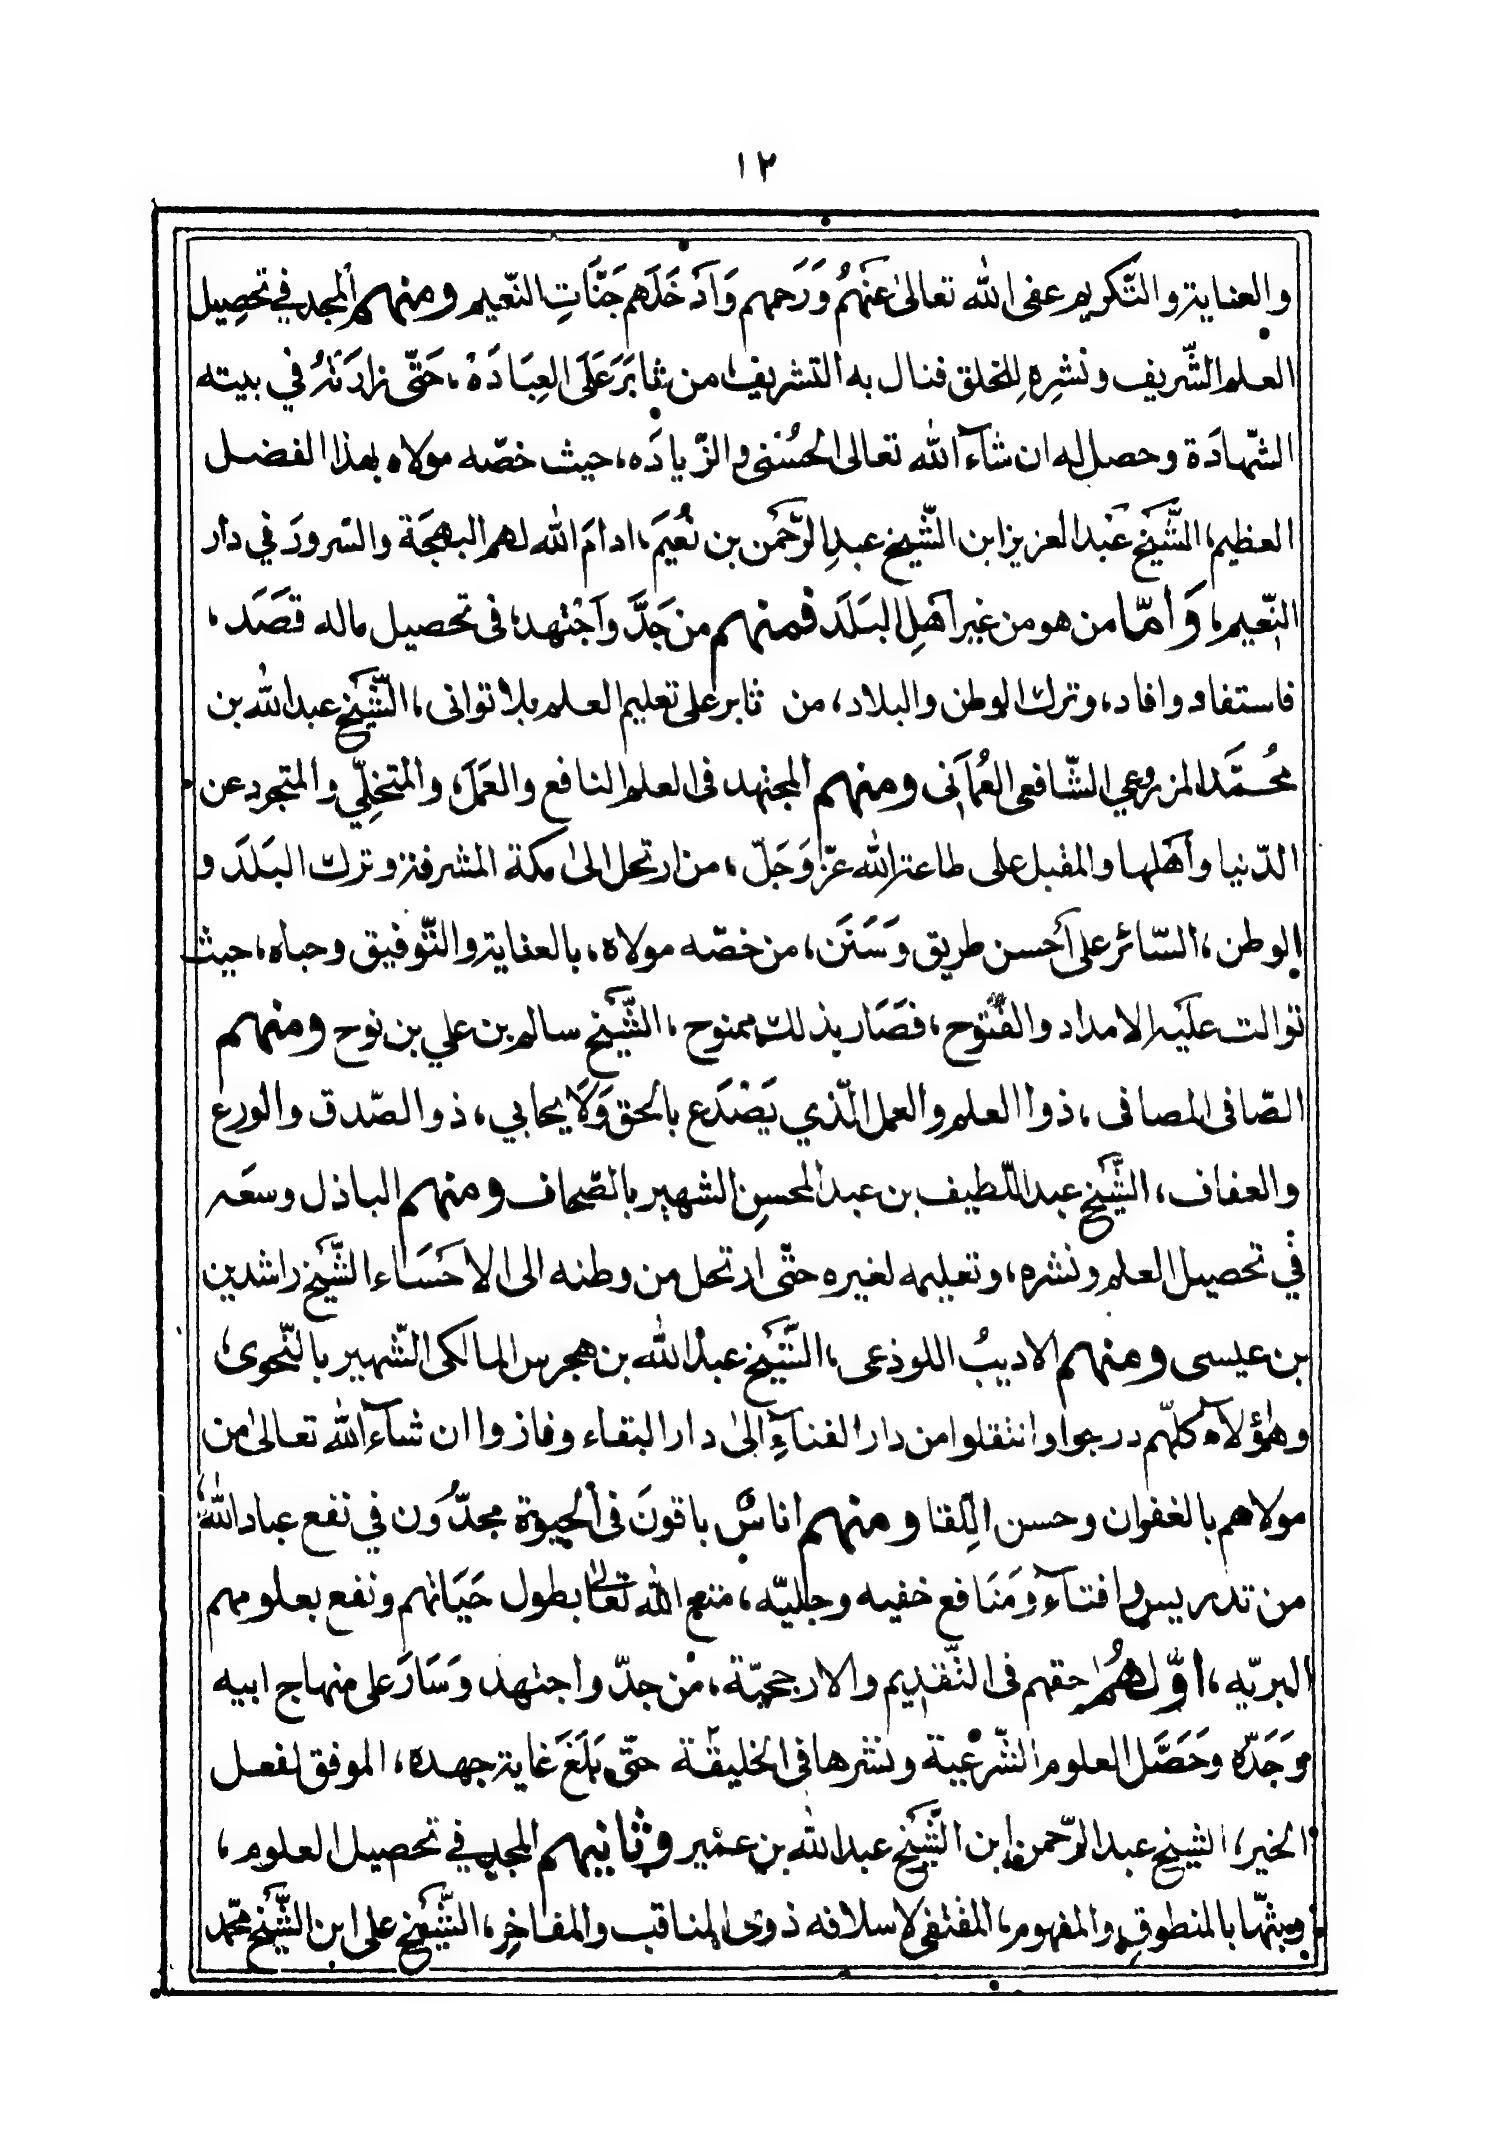 ١٢
والعناية والتّكريم عفى الله تعالىٰ عَنهُم وَرَحمهم وَاَدْخَلَهم جَنَّاتِ النّعيم ومنهم المجد في تحصِيل
العلم الشّريف ونشرِهِ لِلخلق فنال به التشريف، من ثابَرَ عَلَى العِبَادَهْ، حَتّٰى زادَتهُ في بيته
الشّهادَة وحصل له ان شآء الله تعالى الحُسْنى والزّيادَه، حيث خصّه مولاه بهذا الفضل
العظيم، الشَّيخ عَبْد العزيز ابن الشّيخ عبدِ الرّحمٰن بن نُعَيم، ادامَ الله لهم البهجَة والسّرورَ في دار
النّعيم، وَأمّا من هو من غير اَهلِ البَلَد فمنهم من جَدَّ وَاجْتهد، فى تحصيل ماله قصَدَ،
فاستفاد وافاد، وترك الوطن والبلاد، من ثابر على تعليم العلم بلا توانى، الشَّيخ عبد الله بن
محُمّد المزروعي الشّافعى العُمانى ومنهم المجتهد فى العلم النافع والعَمَل، والمتخلّي والمتجرد عن
الدّنيا وأهلها والمقبل على طاعة الله عزّ وَجَلّ، من ارتحل الىٰ مكة المشرفة وترك البَلَدَ و
الوطن، السّائر على أحسن طريق وَسَنَن، من خصّه مولاه، بالعناية والتّوفيق وحباه، حيث
توالت عليه الامداد والفُتوح، فصَار بذلك ممنوح، الشَّيخ سالم بن علي بن نوح ومنهم
الصّافى المصافى، ذو العلم والعمل الّذي يَصْدَع بالحق وَلَا يحابي، ذو الصّدق والورع
والعفاف، الشَّيخ عبد اللّطيف بن عبد المحسِن الشهير بالصّحاف ومنهم الباذل وسعه
في تحصيل العلم ونشره، وتعليمه لغيره حتّى ارتحل من وطنه الى الاحَسَاء الشَّيخ راشد بن
بن عيسى ومنهم الاديبُ اللوذعى، الشَّيخ عبد الله بن هجرس المالكى الشّهير بالنّحوى،
وهٰؤلآء كلّهم درجوا وانتقلوا من دار الفنآءِ إلىٰ دار البقاء وفازوا ان شآء الله تعالىٰ من
مولاهم بالغفران وحسن اللِّقا ومنهم اناسٌ باقونَ فى الحيوة مجدُّون في نفع عباد الله
من تدريس وافتآء وَمَنَافع خفيه وجليّه، متع الله تعالىٰ بطول حَيَاتهم ونفع بعلومهم
البريّه، اوّلهُم احقهم فى التّقديم والارجحيّة، من جدّ واجتهد وَسَارَ على منهاج ابيه
وَجَدّه وحَصَّل العلوم الشّرعية ونشرها فى الخليقة حتّى بَلَغَ غاية جهده، الموفق لفعل
الخير، الشيخ عبد الرّحمن ابن الشَّيخ عبد الله بن عمَير وثانيهم المجد في تحصيل العلوم،
وبثّها بالمنطوقِ والمفهوم، المقتفى لاسلافه ذوى المناقب والمفاخِر، الشَّيخ على ابن الشَّيخ محمّد